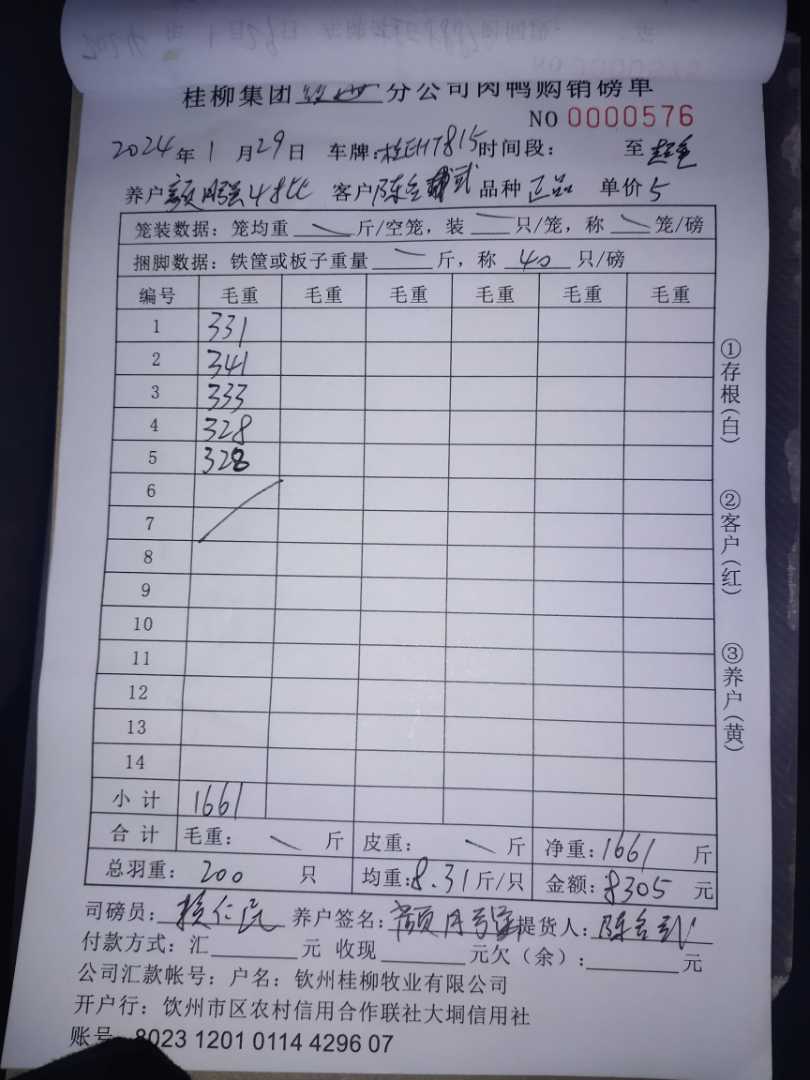 桂柳集团 钦州 分公司肉鸭购销磅单
NO 0000576
2024 年 1 月 29 日 车牌: 桂EHT815 时间段: 至
养户 客户 陈 武 品种 正品 单价 5
笼装数据: 笼均重 斤/空笼, 装 只/笼, 称 笼/磅
捆脚数据: 铁筐或板子重量 斤, 称 40 只/磅
编号 毛重 毛重 毛重 毛重 毛重 毛重
1 331
2 341
3 333
4 328
5 328
6
7
8
9
10
11
12
13
14
小 计 1661
合 计 毛重: 斤 皮重: 斤 净重: 1661 斤
总羽重: 200 只 均重: 8.31 斤/只 金额: 8305 元
司磅员: 养户签名: 提货人: 陈 武
付款方式: 汇 元 收现 元欠(余): 元
公司汇款帐号: 户名: 钦州桂柳牧业有限公司
开户行: 饮州市区农村信用合作联社大垌信用社
账号: 8023 1201 0114 4296 07
①存根(白)
②客户(红)
③养户(黄)